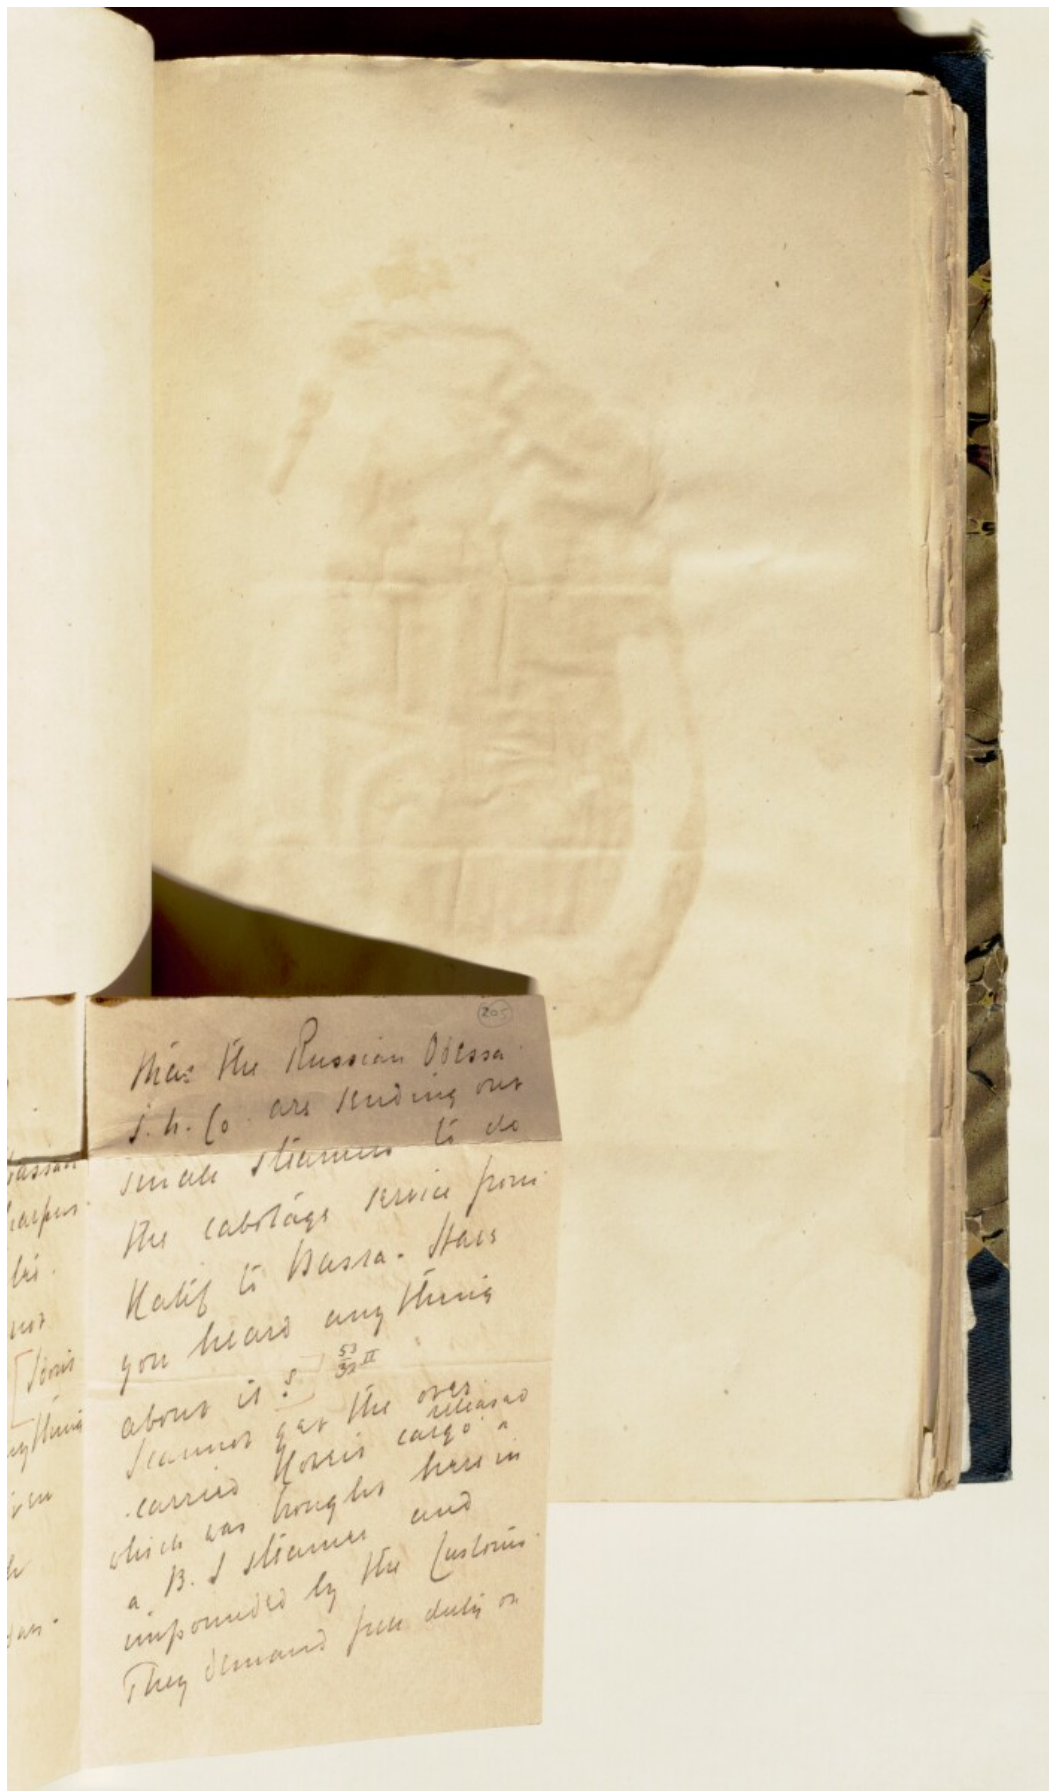 205
that the Russian Odessa
S. N. Co. are sending out
small steamers to do
the cabotage service from
Katif to Bussra. Have
you heard anything
about it?
53/32 II
I cannot get the over
carried Koweit cargo released
which was brought here in
a B. I steamer and
impounded by the Customs.
They demand full duty on